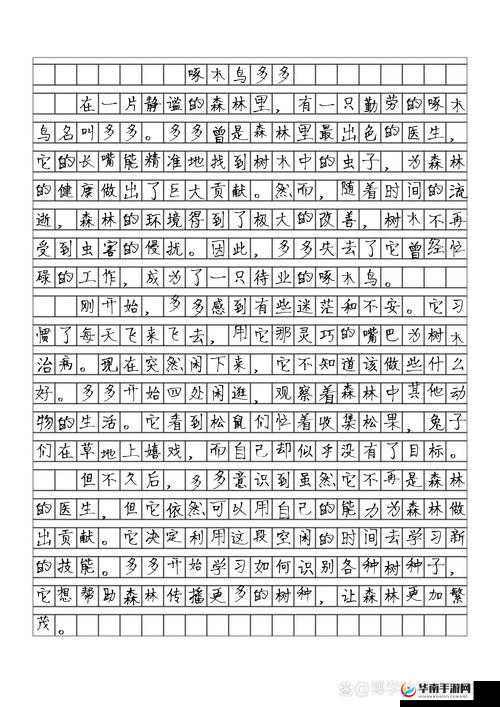 啄木鸟多多
在一片静谧的森林里，有一只勤劳的啄木
鸟名叫多多。多多曾是森林里最出色的医生，
它的长嘴能精准地找到树木中的虫子，为森林
的健康做出了巨大贡献。然而，随着时间的流
逝，森林的环境得到了极大的改善，树木不再
受到虫害的侵扰。因此，多多失去了它曾经忙
碌的工作，成为了一只待业的啄木鸟。
刚开始，多多感到有些迷茫和不安。它习
惯了每天飞来飞去，用它那灵巧的嘴巴为树木
治病。现在突然闲下来，它不知道该做些什么
好。多多开始四处闲逛，观察着森林中其他动
物的生活。它看到松鼠们忙着收集松果，兔子
们在草地上嬉戏，而自己却似乎没有了目标。
但不久后，多多意识到虽然它不再是森林
的医生，但它依然可以用自己的能力为森林做
出贡献。它决定利用这段空闲的时间去学习新
的技能。多多开始学习如何识别各种树种子，
它想帮助森林传播更多的树种，让森林更加繁
茂。
华南手游网